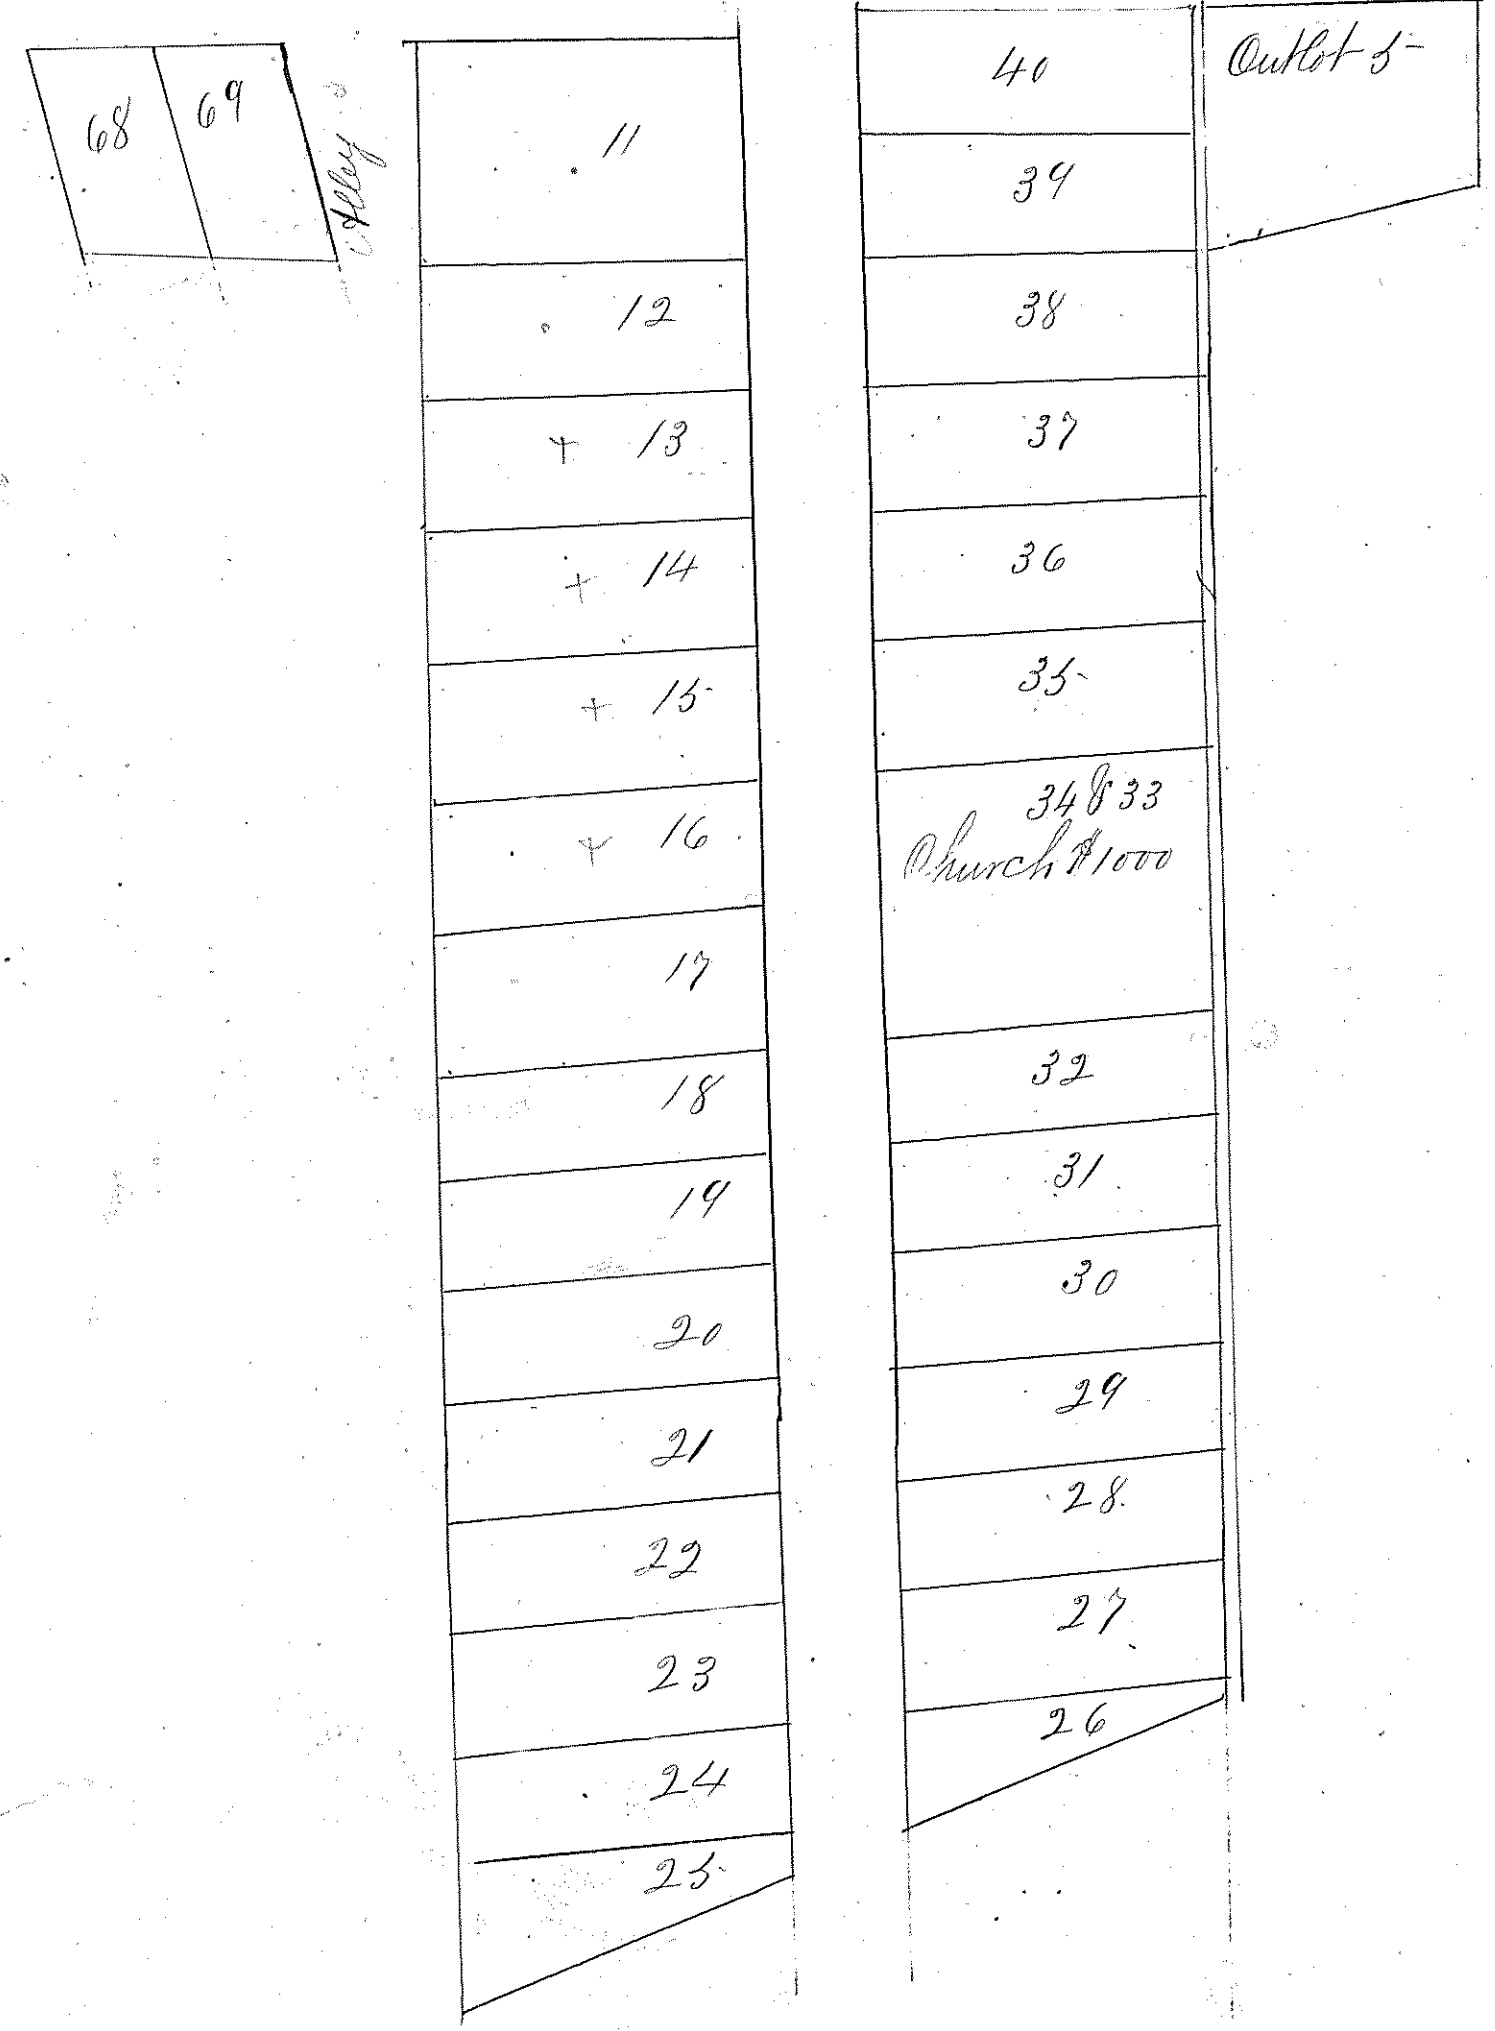 68
69
Alley
11
12
+ 13
+ 14
+ 15
+ 16
17
18
19
20
21
22
23
24
25
40
39
38
37
36
35
34 & 33
Church $1000
32
31
30
29
28
27
26
Outlot 5